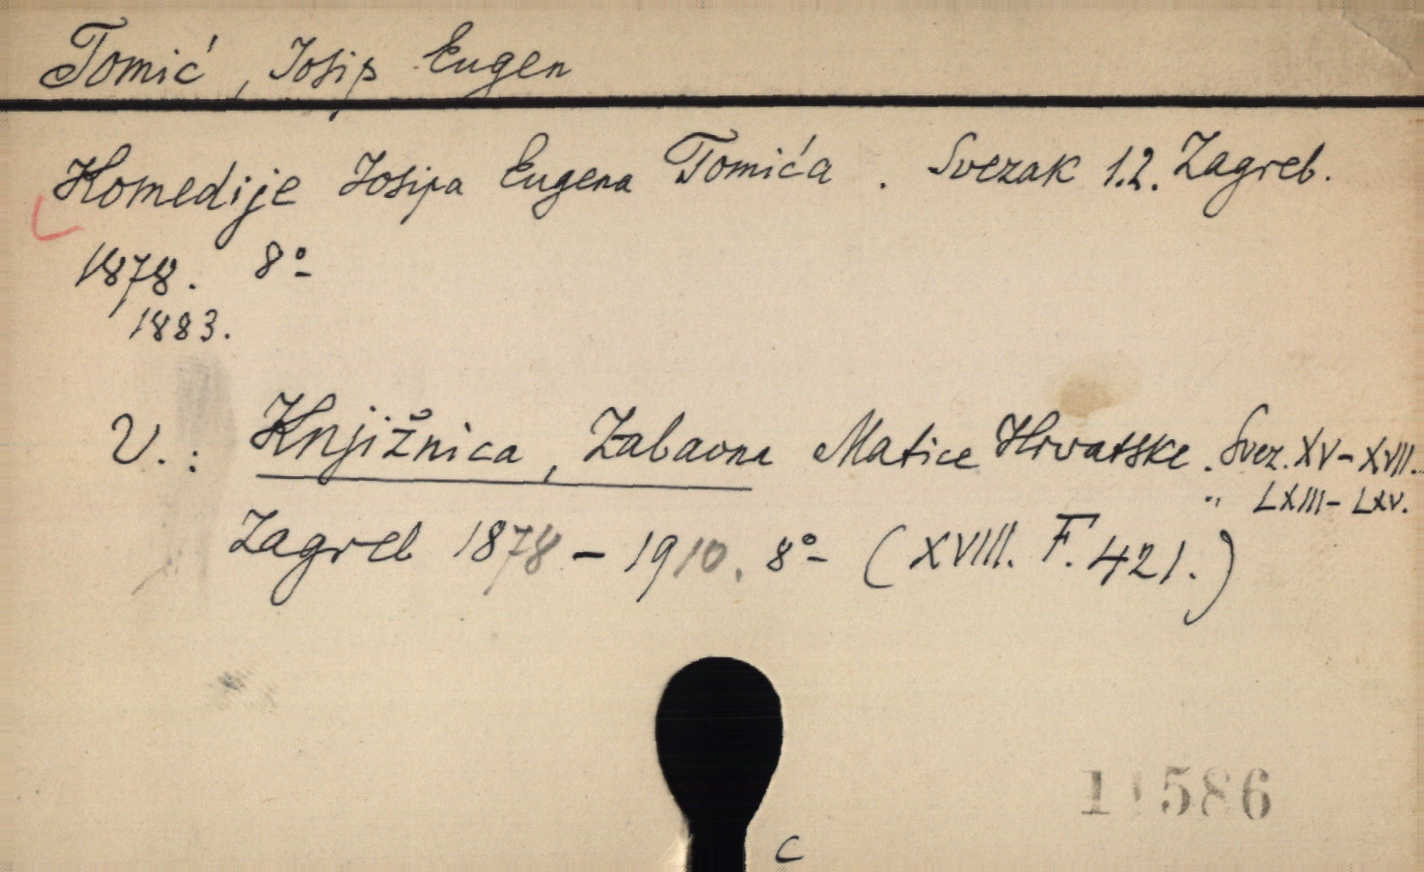 Tomić, Josip Eugen
Komedije Josipa Eugena Tomića. Svezak 1.2. Zagreb.
1878. 8°
1883.
V.: Knjižnica, Zabavna Matice Hrvatske. Svez. XV-XVII.
" LXIII-LXV.
Zagreb 1878-1910. 8° (XVIII. F. 421.)
11586
C